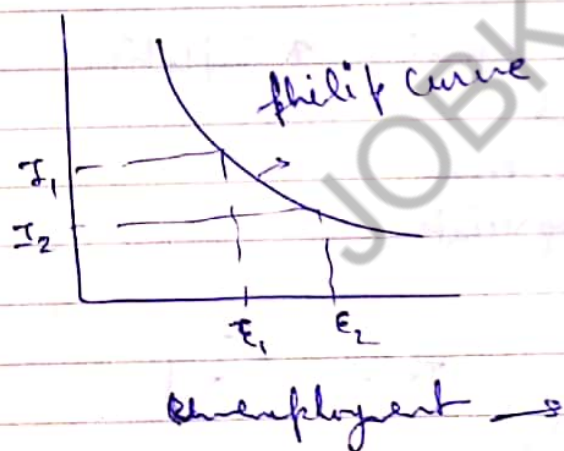 Philip curve
I₁
I₂
E₁ E₂
Unemployment →
JOBK